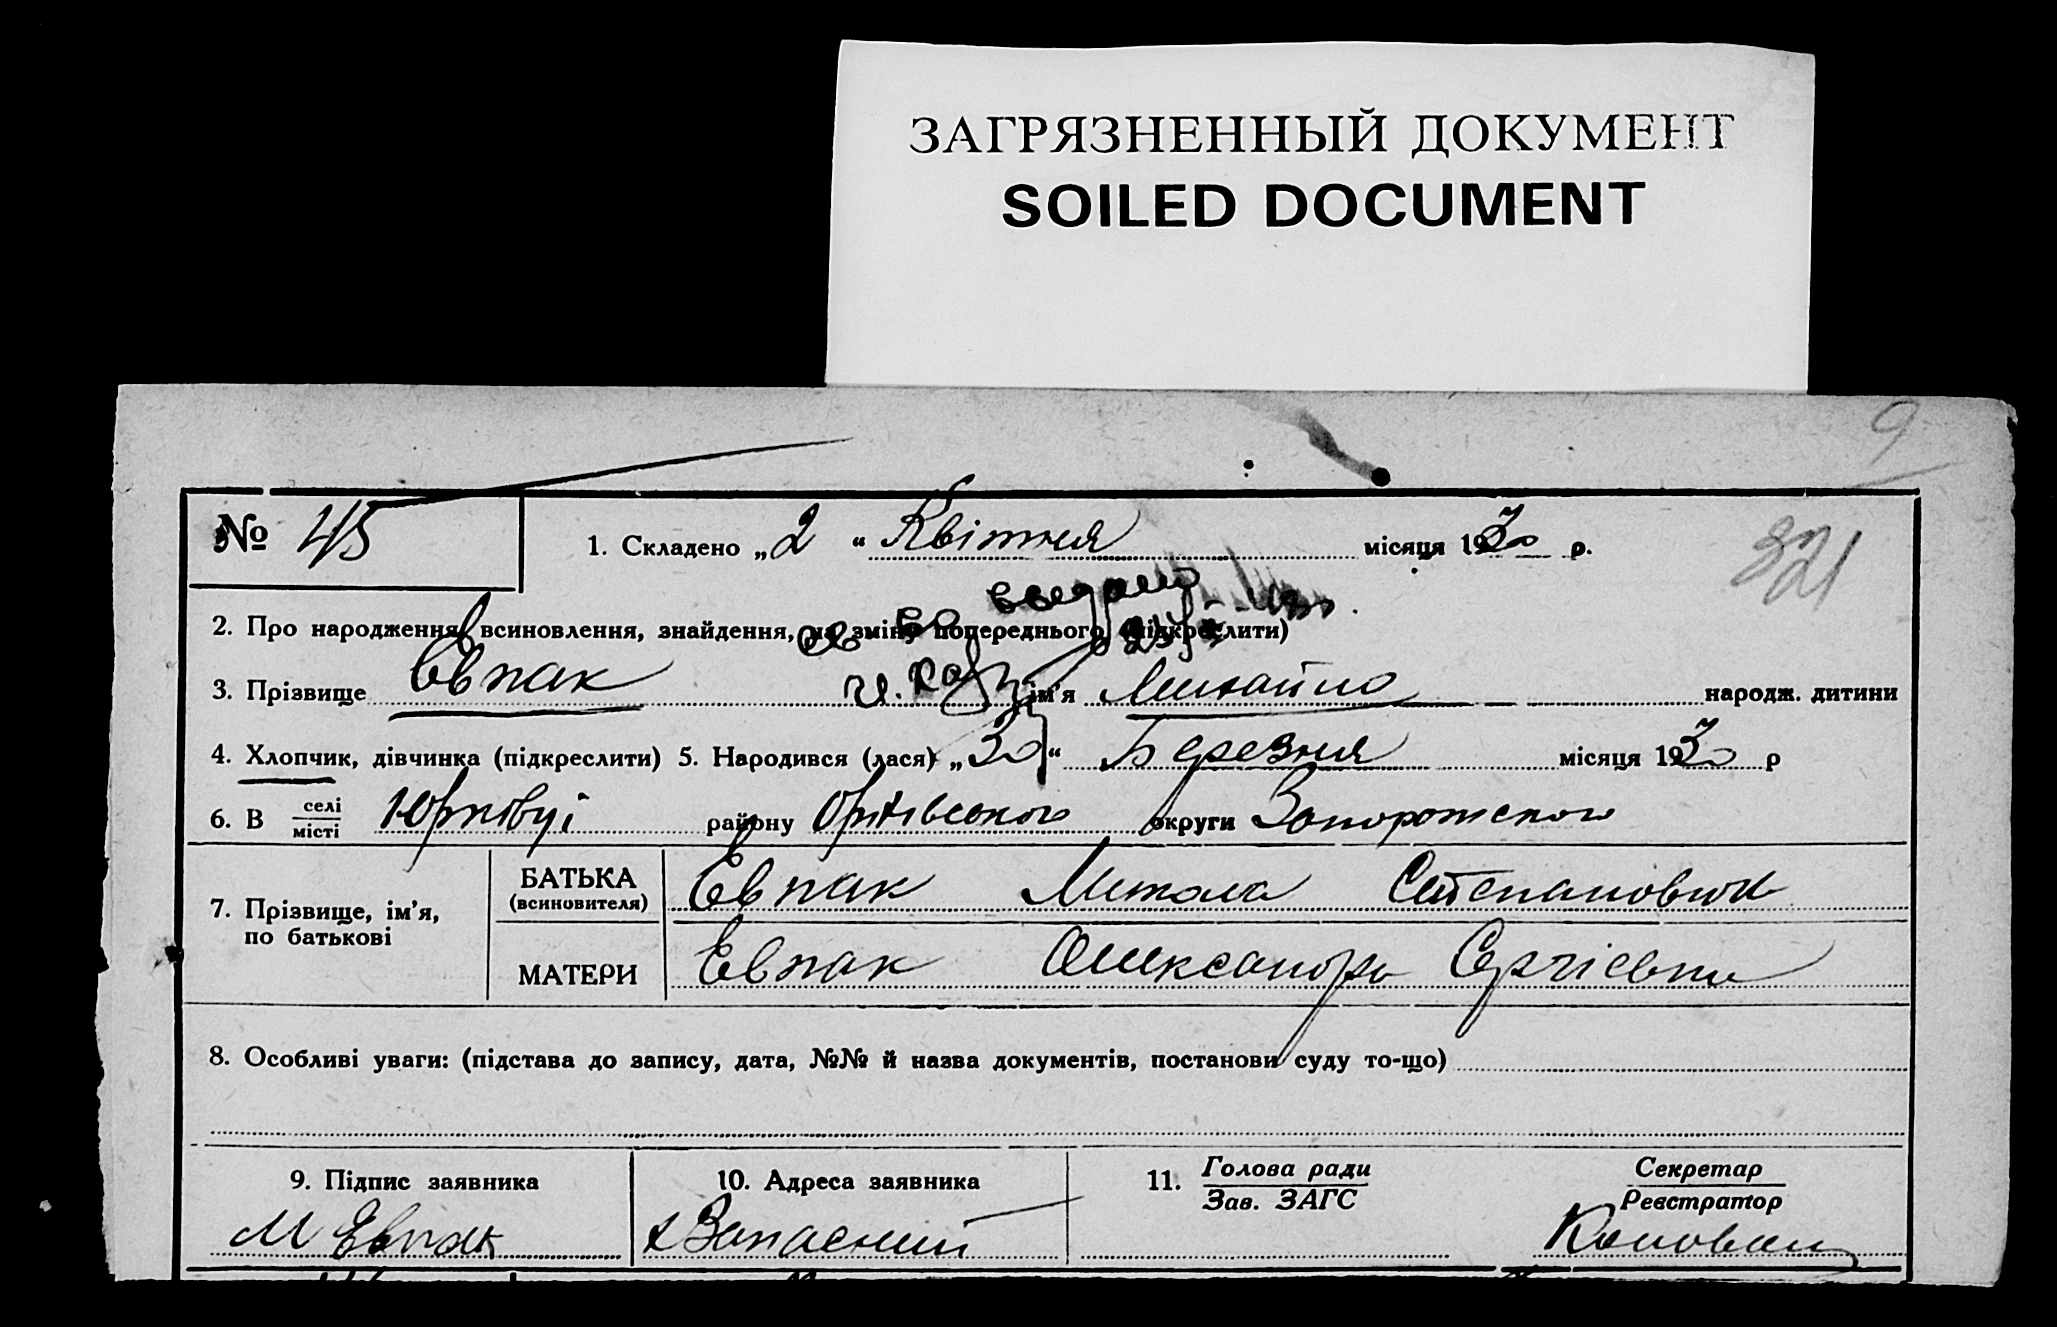 ЗАГРЯЗНЕННЫЙ ДОКУМЕНТ
SOILED DOCUMENT
9
321
№ 45
1. Складено „2“ Квітня місяця 1930 р.
2. Про народження, всиновлення, знайдення, на зміну попереднього (підкреслити)
3. Прізвище Євпак ім'я Михайло народж. дитини
4. Хлопчик, дівчинка (підкреслити) 5. Народився (лася) „30“ Березня місяця 1930 р
6. В селі місті Юрківці району Оріхівського округи Запорожского
7. Прізвище, ім'я, по батькові
БАТЬКА (всиновителя) Евпак Микола Степанович
МАТЕРИ Евпак Олександра Сергієвна
8. Особливі уваги: (підстава до запису, дата, №№ й назва документів, постанови суду то-що)
9. Підпис заявника 10. Адреса заявника 11. Голова ради Зав. ЗАГС Секретар Реєстратор
М Евпак Запасний